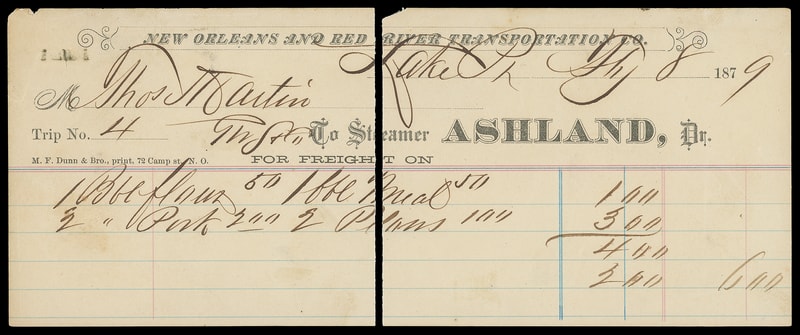 NEW ORLEANS AND RED RIVER TRANSPORTATION CO.
Lake Ph 8 1879
M Thos Martin
Trip No. 4 To Streamer ASHLAND, Dr.
M. F. Dunn & Bro., print. 72 Camp st., N. O. FOR FREIGHT ON
1 Bbl flour 50 1 bbl Meal 50 1 00
2 " Pork 2 00 2 Plows 1 00 3 00
4 00
2 00 6 00